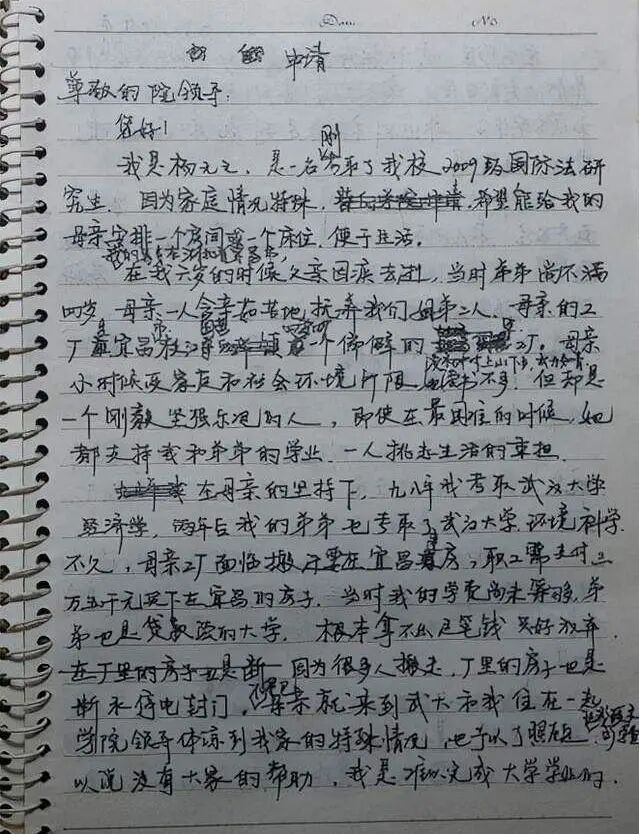 申请
尊敬的院领导:
您好!
我是杨元元,是一名刚考取了我校2009级国际法研
究生。因为家庭情况特殊,希望能给我的
母亲安排一个房间或一个床位,便于生活。
在我六岁的时候父亲因疾去逝,当时弟弟尚不满
四岁,母亲一人含辛茹苦地抚养我们姐弟二人。母亲的工
厂是宜昌市枝江一个偏僻的工厂。母亲
小时候受家庭和社会环境所限读书不多,但却是
一个刚毅坚强乐观的人,即使在最困难的时候,她
都支持我和弟弟的学业,一人挑起生活的重担。
在母亲的坚持下,九八年我考取武汉大学
经济学,两年后我的弟弟也考取了武汉大学环境科学。
不久,母亲工厂面临搬迁要在宜昌买房,职工需支付三
万五千元买下在宜昌的房子。当时我的学费尚未筹够,弟
弟也是贷款读的大学。根本拿不出这笔钱只好放弃。
在厂里的房子也是断 因为很多人搬走,厂里的房子也是
断水停电封门,母亲就来到武大和我住在一起
学院领导体谅到我家的特殊情况,也予以了照顾。可
以说没有大家的帮助,我是难以完成大学学业的。